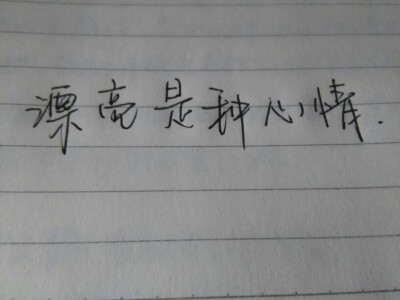 漂亮是种心情.